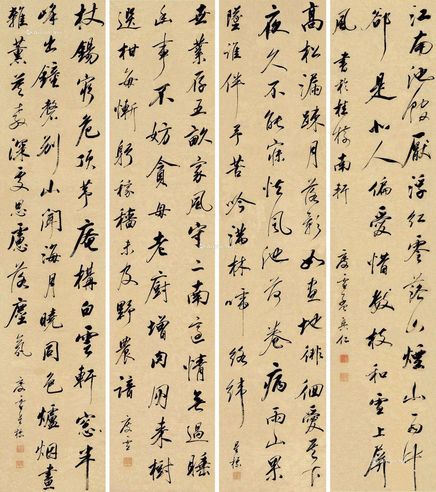 江南池館厭深紅零落山煙山雨中
却是北人偏愛惜數枝和雪上屏
風 書於桂枝南軒
高松漏疎月落影如畫地徘徊愛其下
夜久不能寐怯風池荷卷病雨山果
墜誰伴予苦吟滿林啼絡緯
業存五畝家風守二南適情無過睡
幽事不妨貪母老厨增肉朋來樹
選柑每慚躬稼穡未及野農諳 慶雲
杖錫窮危頂茅庵構白雲軒窗半
峰出鐘磬別小聞海月曉同色爐烟晝
雜薰 深更思慮落塵氛 慶雲